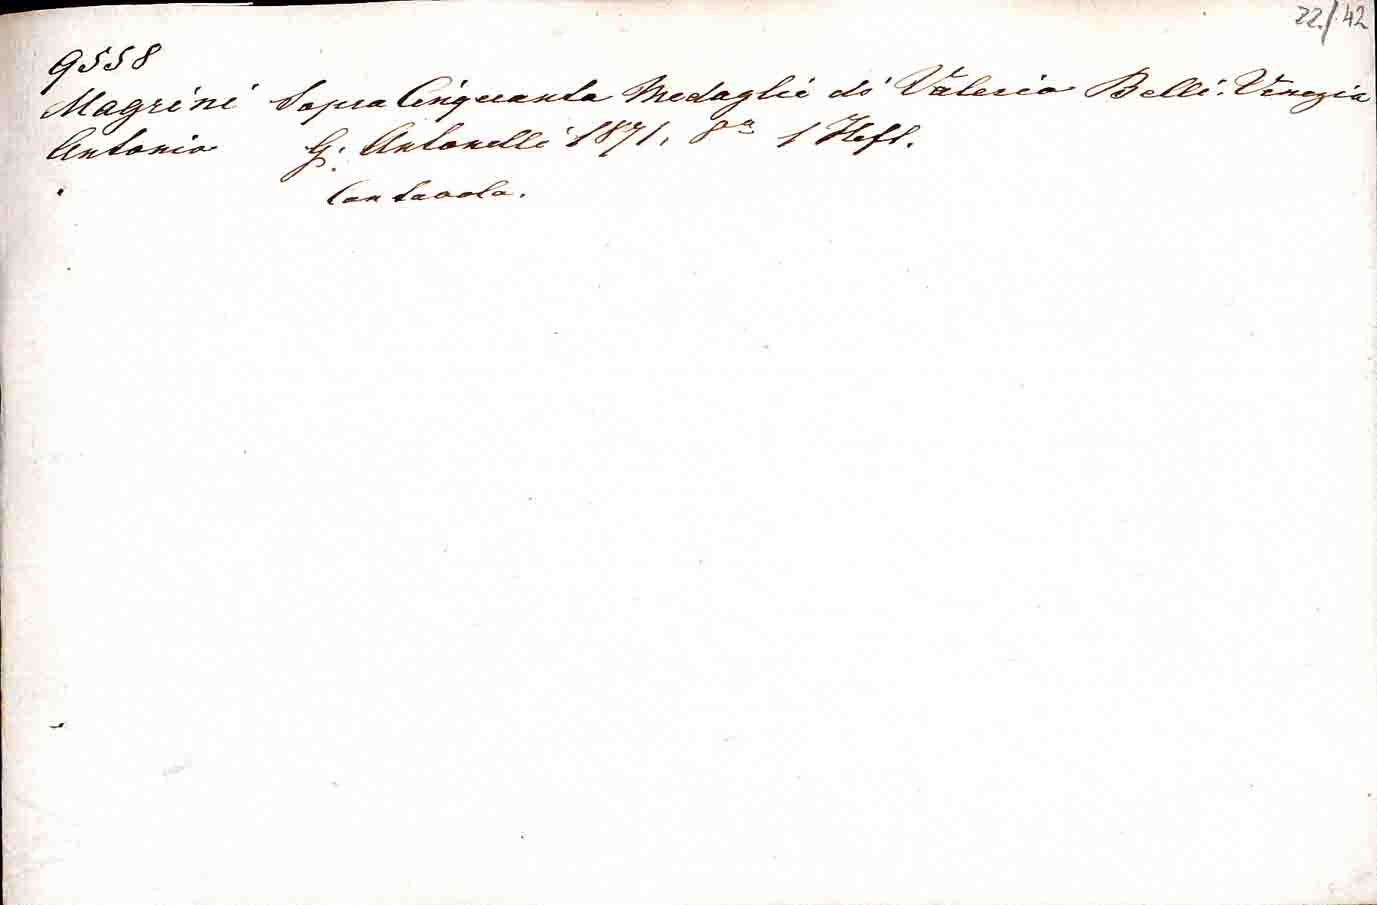 22./42
9558
Magrini Sopra Cinquanta Medaglie di Valerio Belli. Venezia
Antonio G. Antonelli 1871. 8° 1 Heft.
Con tavola.